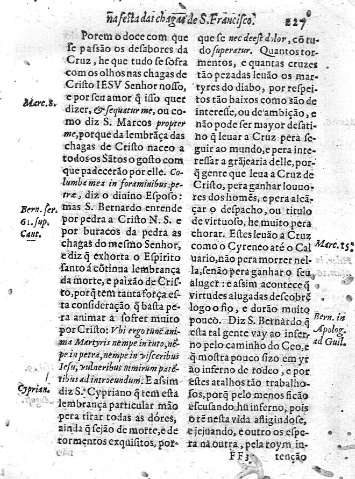 na festa das chagas de S. Francisco. 227
Porem o doce com que
se passão os desabores da
Cruz, he que tudo se sofra
com os olhos nas chagas de
Cristo IESV Senhor nosso,
e por seu amor q̃ isso quer
Marc. 8.
dizer, & sequatur me, ou co-
mo diz S. Marcos propter
me, porque da lembrãça das
chagas de Cristo naceo a
todos os Sãtos o gosto com
que padecerão por elle. Co-
lumba mea in foraminibus pe-
træ, diz o diuino Esposo:
Bern. ser.
61. sup.
Cant.
mas S. Bernardo entende
por pedra a Cristo N. S. e
por buracos da pedra as
chagas do mesmo Senhor,
e diz q̃ exhorta o Espirito
santo á cõtinua lembrança
da morte, e paixão de Cris-
to, porq̃ tem tanta força es-
ta consideração q̃ basta pe-
ra animar a sofrer muito
por Cristo: Vbi ergo tunc ani-
ma Martyris nempe in tuto, nẽ-
pe in petra, nempe in visceribus
Iesu, vulneribus nimirum paten-
tibus ad introeundum: E assim
Cyprian.
diz S. Cypriano q̃ tem esta
lembrança particular mão
pera tirar todas as dóres,
ainda q̃ sejão de morte, e de
tormentos exquisitos, por-
que se nec deest dolor, cõ tu-
do superatur. Quantos tor-
mentos, e quantas cruzes
tão pezadas leuão os mar-
tyres do diabo, por respei-
tos tão baixos como são de
interesse, ou de ambição, e
não pode ser mayor desati-
no q̃ leuar a Cruz pera se-
guir ao mundo, e pera inte-
ressar a grãjearia delle, por-
q̃ gente que leua a Cruz de
Cristo, pera ganhar louuo-
res dos homẽs, e pera alcã-
çar o despacho, ou titulo
de virtuoso, he muito pera
chorar. Estes leuão a Cruz
Marc. 15.
como o Cyreneo até o Cal
uario, não pera morrer nel-
la, senão pera ganhar o seu
aluger: e assim acontece q̃
virtudes alugadas descobrẽ
logo o fio, e durão muito
Bern. in
Apolog.
ad Guil.
pouco. Diz S. Bernardo q̃
esta tal gente vay ao infer-
no pelo caminho do Ceo, e
q̃ mostra pouco sizo em yr
ao inferno de rodeo, e por
estes atalhos tão trabalho-
sos, porq̃ pelo menos ficão
escusando hũ inferno, pois
o tẽ nesta vida afligindose,
e jejuando, e outro os espe-
ra na outra, pela roym in-
FF3 tenção